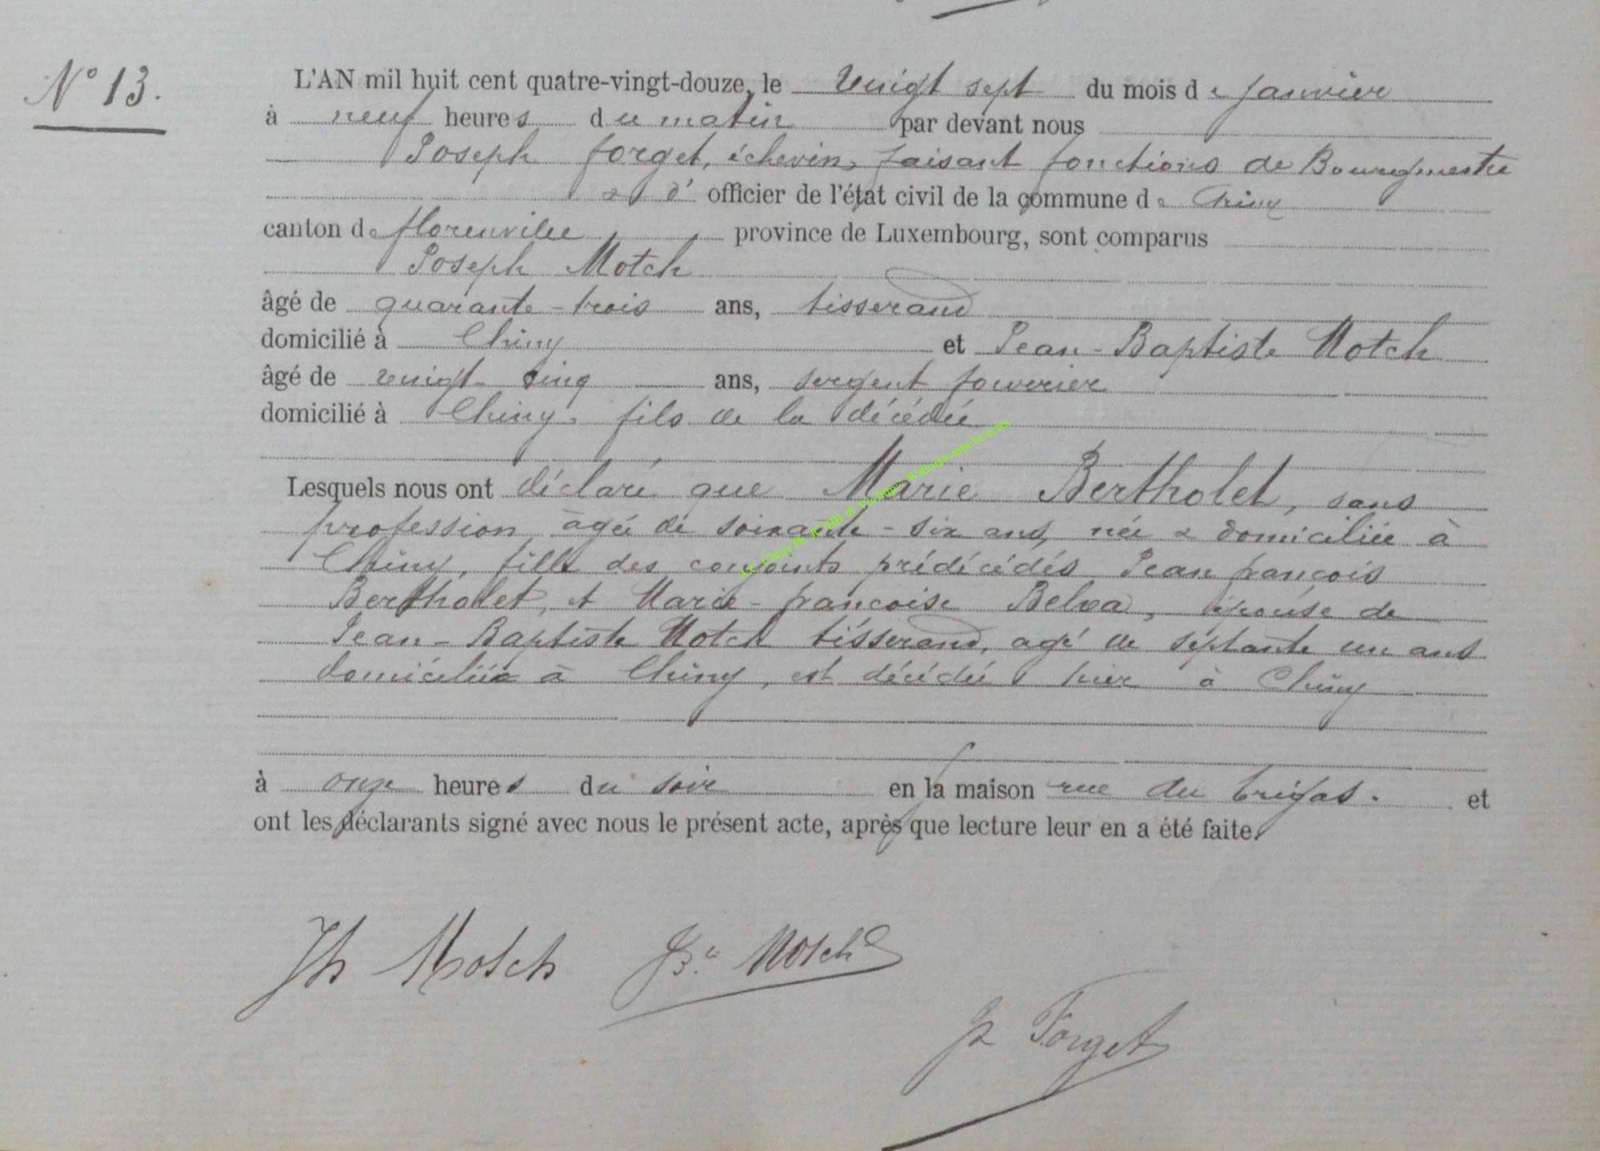 N° 13.
L'AN mil huit cent quatre-vingt-douze, le vingt sept du mois de janvier
à neuf heures du matin par devant nous
Joseph forget, échevin, faisant fonctions de Bourgmestre
& d' officier de l'état civil de la commune de Chiny
canton de florenville province de Luxembourg, sont comparus
Joseph Motch
âgé de quarante-trois ans, tisserand
domicilié à Chiny et Jean-Baptiste Motch
âgé de vingt cinq ans, sergent fourrier
domicilié à Chiny, fils de la décédée
Lesquels nous ont déclaré que Marie Bertholet, sans
profession, âgée de soixante-six ans, née & domiciliée à
Chiny, fille des conjoints prédécédés Jean françois
Bertholet, et Marie-françoise Belva, épouse de
Jean-Baptiste Motch tisserand, agé de séptante un ans
domiciliée à Chiny, est décédée hier à Chiny
à onze heures du soir en la maison rue du et
ont les déclarants signé avec nous le présent acte, après que lecture leur en a été faite.
Jh Motch JB.te Motch
J Forget